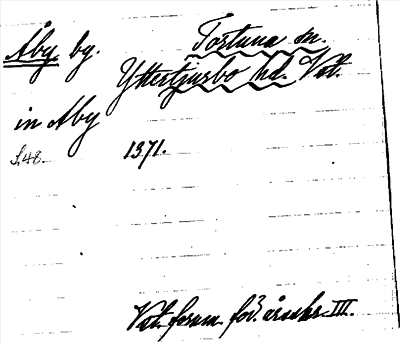 Åby by. Tortuna sn.
Yttertjurbo hd. Vstl.
in Aby
S. 48. 1371.
Vstl. fornm. för. årsskr. III.